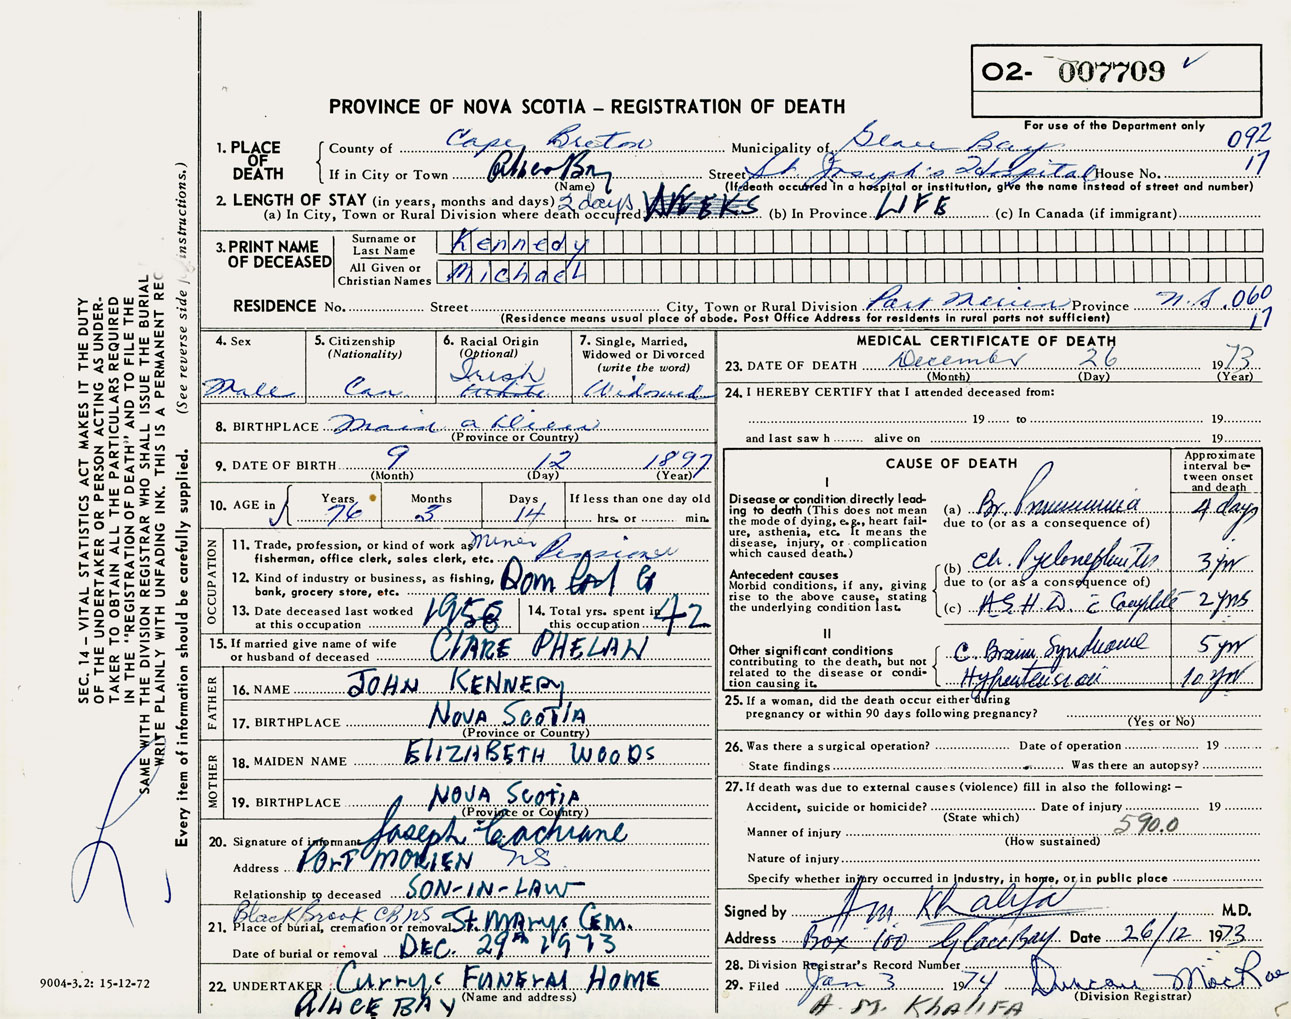 O2- 007709
PROVINCE OF NOVA SCOTIA – REGISTRATION OF DEATH
For use of the Department only
092
17
1. PLACE OF DEATH
County of Cape Breton Municipality of Glace Bay
If in City or Town Glace Bay Street St. Joseph's Hospital House No.
(Name) (If death occurred in a hospital or institution, give the name instead of street and number)
2. LENGTH OF STAY (in years, months and days) 2 days WEEKS
(a) In City, Town or Rural Division where death occurred (b) In Province LIFE (c) In Canada (if immigrant)
3. PRINT NAME OF DECEASED
Surname or Last Name Kennedy
All Given or Christian Names Michael
RESIDENCE No. Street City, Town or Rural Division Port Morien Province N.S. 060
17
(Residence means usual place of abode. Post Office Address for residents in rural parts not sufficient)
4. Sex
Male
5. Citizenship (Nationality)
Can
6. Racial Origin (Optional)
Irish
White
7. Single, Married, Widowed or Divorced (write the word)
Widowed
8. BIRTHPLACE Main a Dieu
(Province or Country)
9. DATE OF BIRTH 9 12 1897
(Month) (Day) (Year)
10. AGE in Years 76 Months 3 Days 14 If less than one day old
hrs. or min.
OCCUPATION
11. Trade, profession, or kind of work as fisherman, office clerk, sales clerk, etc. Miner Pensioner
12. Kind of industry or business, as fishing, bank, grocery store, etc. Dom Coal Co
13. Date deceased last worked at this occupation 1956
14. Total yrs. spent in this occupation 42
15. If married give name of wife or husband of deceased CLARE PHELAN
FATHER
16. NAME JOHN KENNEDY
17. BIRTHPLACE NOVA SCOTIA
(Province or Country)
MOTHER
18. MAIDEN NAME ELIZABETH WOODS
19. BIRTHPLACE NOVA SCOTIA
(Province or Country)
20. Signature of informant Joseph Cochrane
Address PORT MORIEN NS
Relationship to deceased SON-IN-LAW
Black Brook CB NS
21. Place of burial, cremation or removal St. Marys Cem.
Date of burial or removal DEC. 29th 1973
22. UNDERTAKER Currys FUNERAL HOME
(Name and address)
GLACE BAY
MEDICAL CERTIFICATE OF DEATH
23. DATE OF DEATH December 26 1973
(Month) (Day) (Year)
24. I HEREBY CERTIFY that I attended deceased from:
19 to 19
and last saw h alive on 19
CAUSE OF DEATH
Approximate interval between onset and death
I
Disease or condition directly leading to death (This does not mean the mode of dying, e.g., heart failure, asthenia, etc. It means the disease, injury, or complication which caused death.)
(a) Br. Pneumonia 4 days
due to (or as a consequence of)
Antecedent causes
Morbid conditions, if any, giving rise to the above cause, stating the underlying condition last.
(b) Ch. Pyelonephritis 3 yr
due to (or as a consequence of)
(c) A.S.H.D. c̄ 2 yrs
II
Other significant conditions contributing to the death, but not related to the disease or condition causing it.
C. Brain Syndrome 5 yr
Hypertension 10 yr
25. If a woman, did the death occur either during pregnancy or within 90 days following pregnancy?
(Yes or No)
26. Was there a surgical operation? Date of operation 19
State findings Was there an autopsy?
27. If death was due to external causes (violence) fill in also the following: –
Accident, suicide or homicide? Date of injury 19
(State which)
590.0
Manner of injury
(How sustained)
Nature of injury
Specify whether injury occurred in industry, in home, or in public place
Signed by A M Khalifa M.D.
Address Box 100 Glace Bay Date 26/12 1973
28. Division Registrar's Record Number
29. Filed Jan 3 1974 Duncan MacRae
(Division Registrar)
A. M. KHALIFA
SEC. 14 – VITAL STATISTICS ACT MAKES IT THE DUTY
OF THE UNDERTAKER OR PERSON ACTING AS UNDER-
TAKER TO OBTAIN ALL THE PARTICULARS REQUIRED
IN THE "REGISTRATION OF DEATH" AND TO FILE THE
SAME WITH THE DIVISION REGISTRAR WHO SHALL ISSUE THE BURIAL
WRITE PLAINLY WITH UNFADING INK. THIS IS A PERMANENT REC
Every item of information should be carefully supplied. (See reverse side instructions.)
9004-3.2: 15-12-72